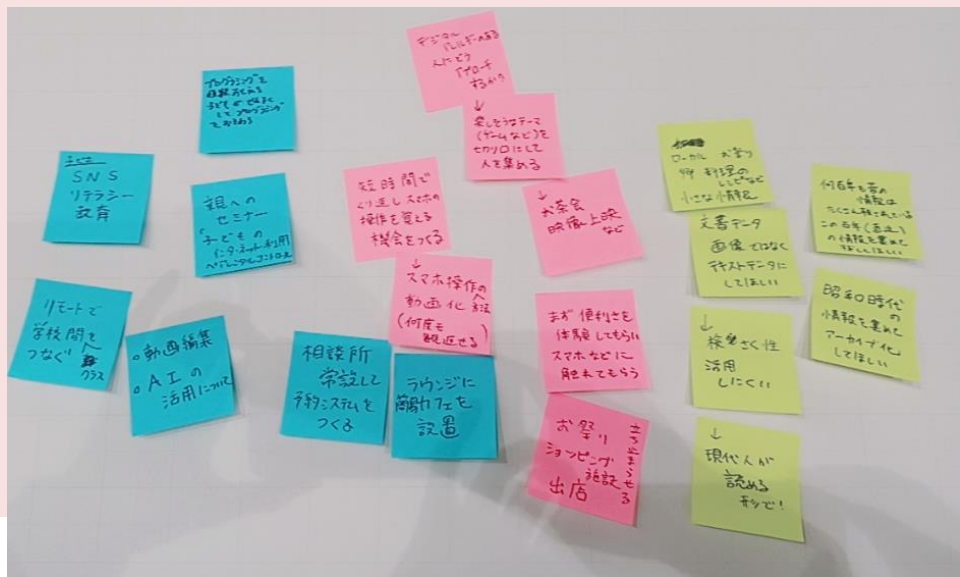 プログラミングを
子どもが
してプログラミング
SNS
リテラシー
教育
親へのセミナー
子どもの
インターネット利用
ペアレンタルコントロール
リモートで
学校間を
つなぐ
クラス
動画編集
AIの
活用について
相談所
常設して
予約システムを
つくる
ラウンジに
カフェを
設置
デジタル
アレルギーのある
人にどう
アプローチ
するか?
↓
楽しそうなテーマ
(ゲームなど)を
切り口にして
人を集める
短時間で
くり返しスマホの
操作を覚える
機会をつくる
↓
スマホ操作の
動画化
(何度も
見返せる)
↓
お茶会
映像上映
など
まず便利さを
体験してもらい
スマホなどに
触れてもらう
お祭り
ショッピング
施設
出店
立ち止まらせる
ローカル お祭り
郷土料理の
レシピなど
小さな情報
文書データ
画像ではなく
テキストデータに
してほしい
↓
検索さく性
活用
しにくい
↓
現代人が
読める
形で!
何百年も昔の
情報は
たくさん残されている
この百年(直近)
の情報を集めて
ほしい
昭和時代
の
情報を集めて
アーカイブ化
してほしい